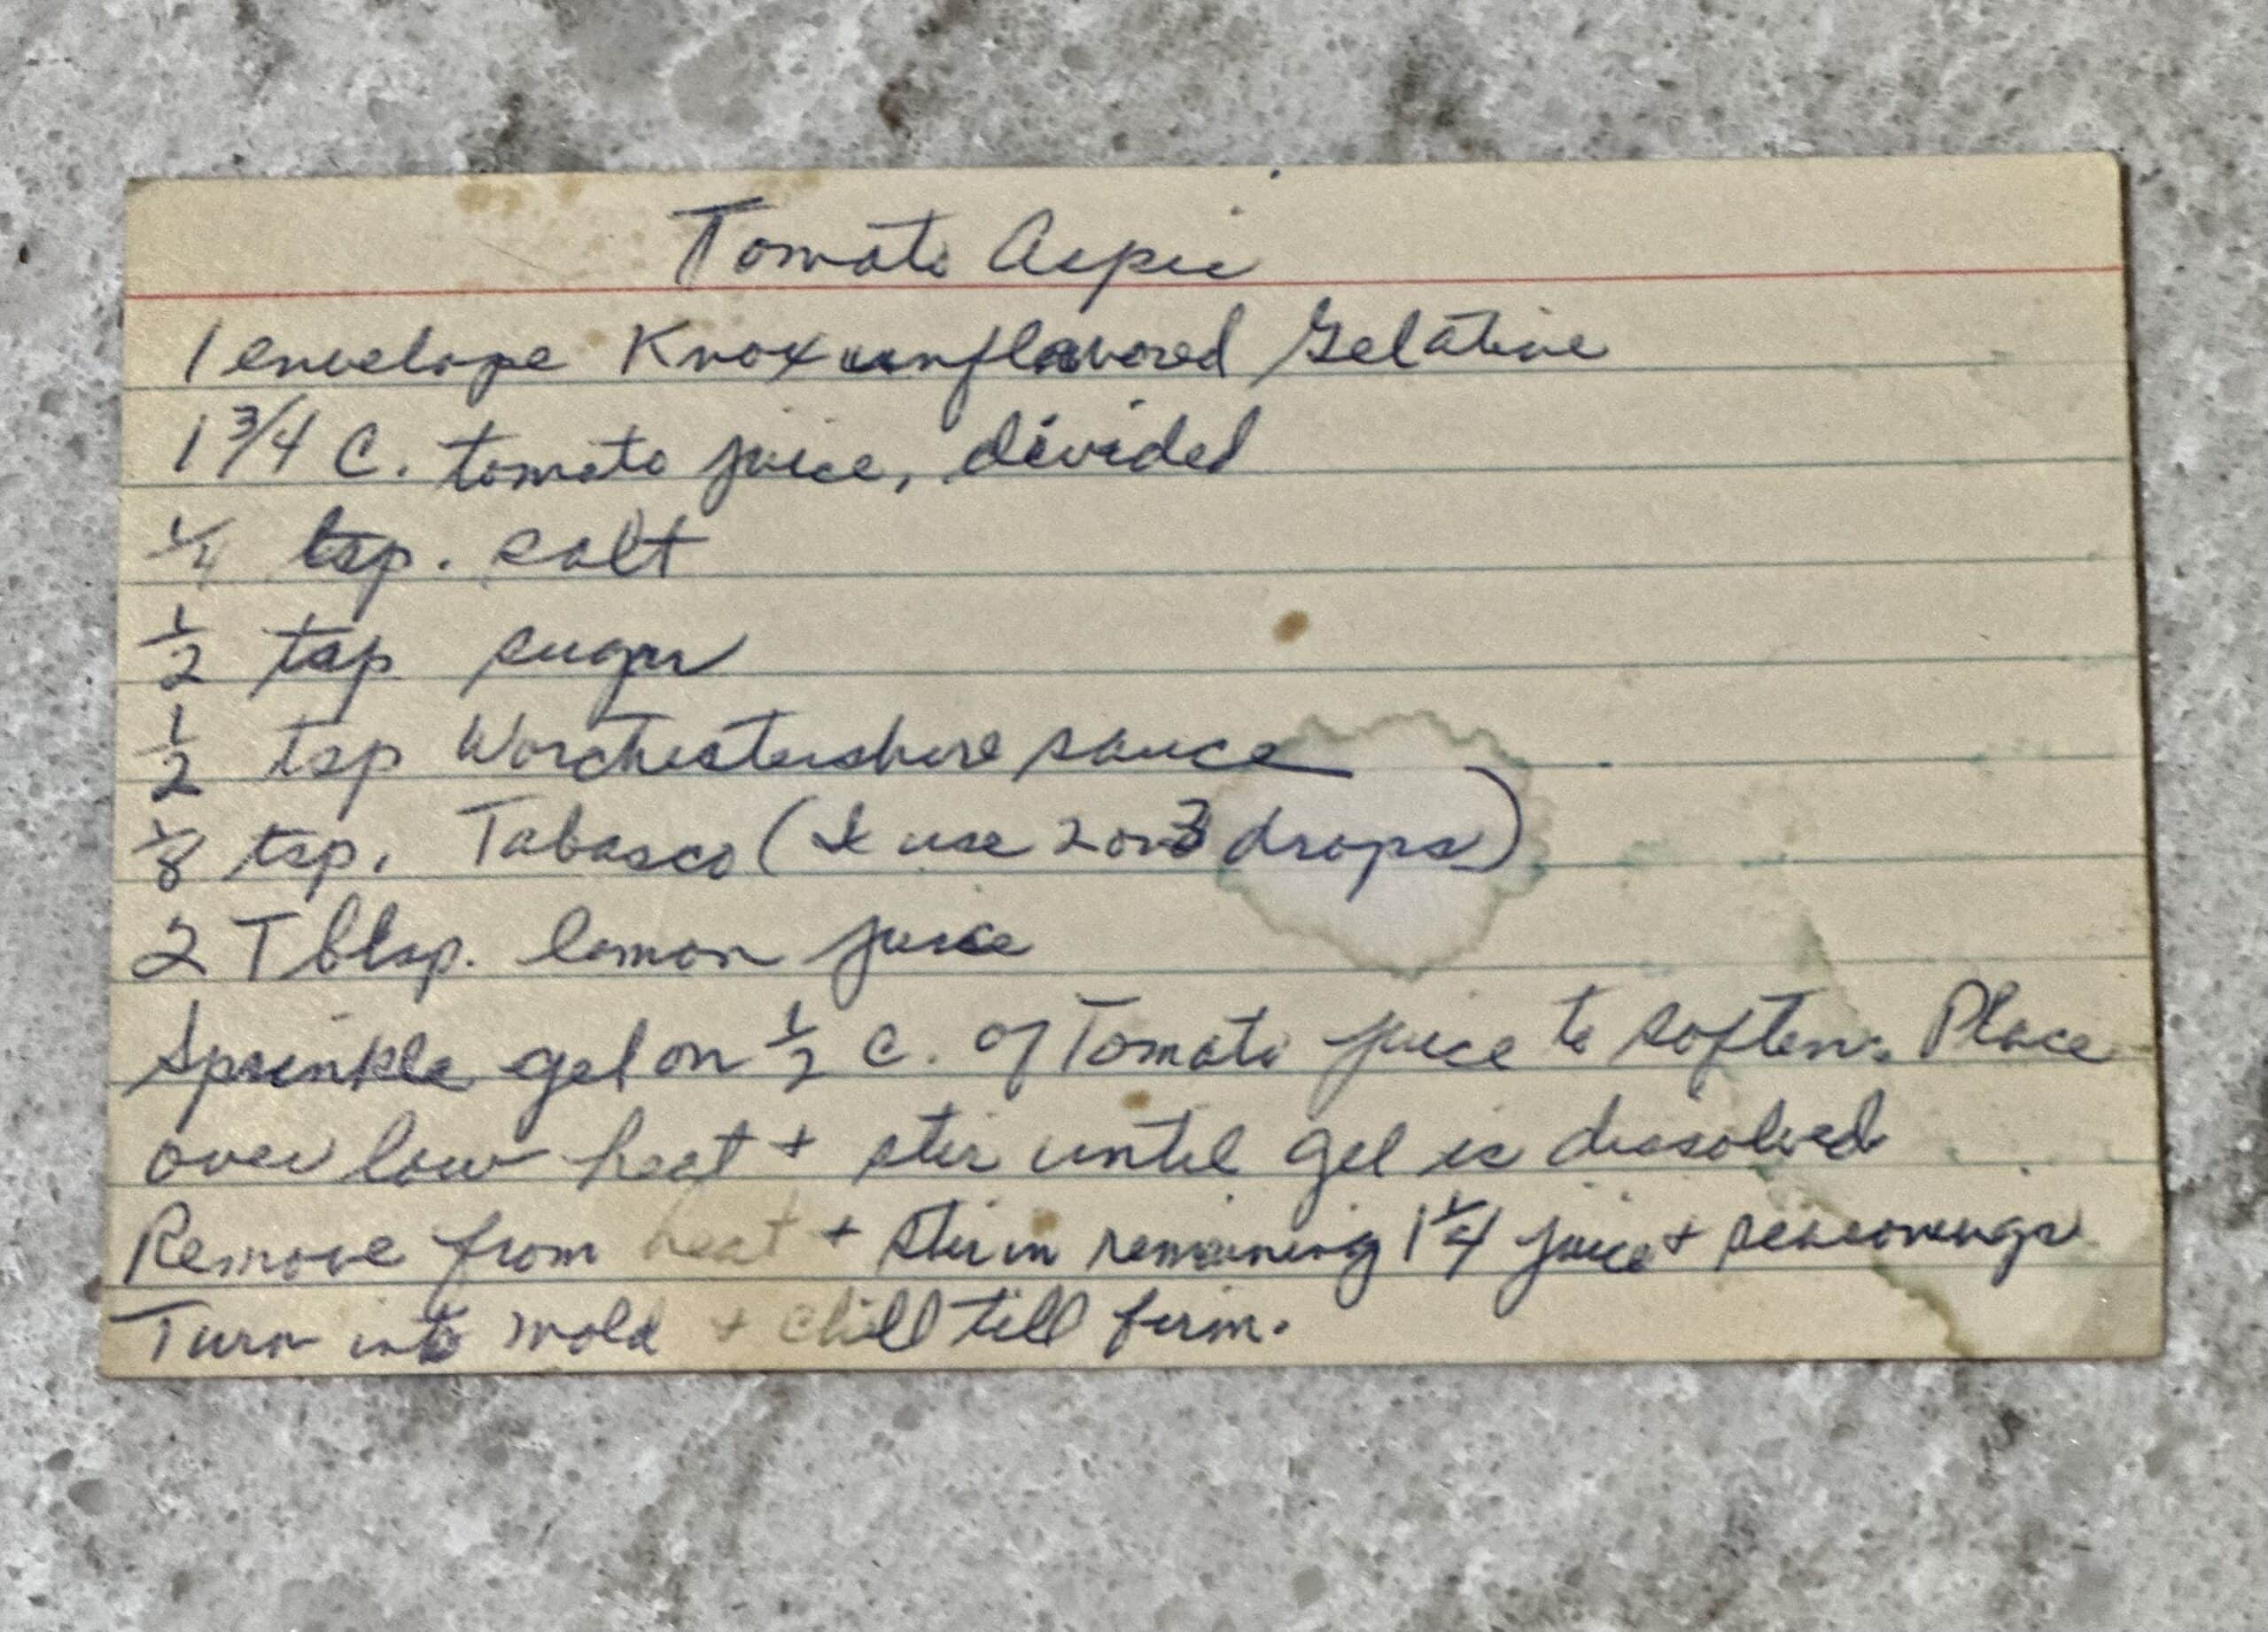 Tomato Aspic
1 envelope Knox unflavored Gelatine
1 3/4 C. tomato juice, divided
1/4 tsp. salt
1/2 tsp sugar
1/2 tsp Worchestershire sauce
1/8 tsp. Tabasco (I use 2 or 3 drops)
2 Tblsp. lemon juice
Sprinkle gel on 1/2 c. of Tomato juice to soften. Place
over low heat + stir until gel is dissolved
Remove from heat + stir in remaining 1 1/4 juice + seasonings
Turn into mold + chill till firm.